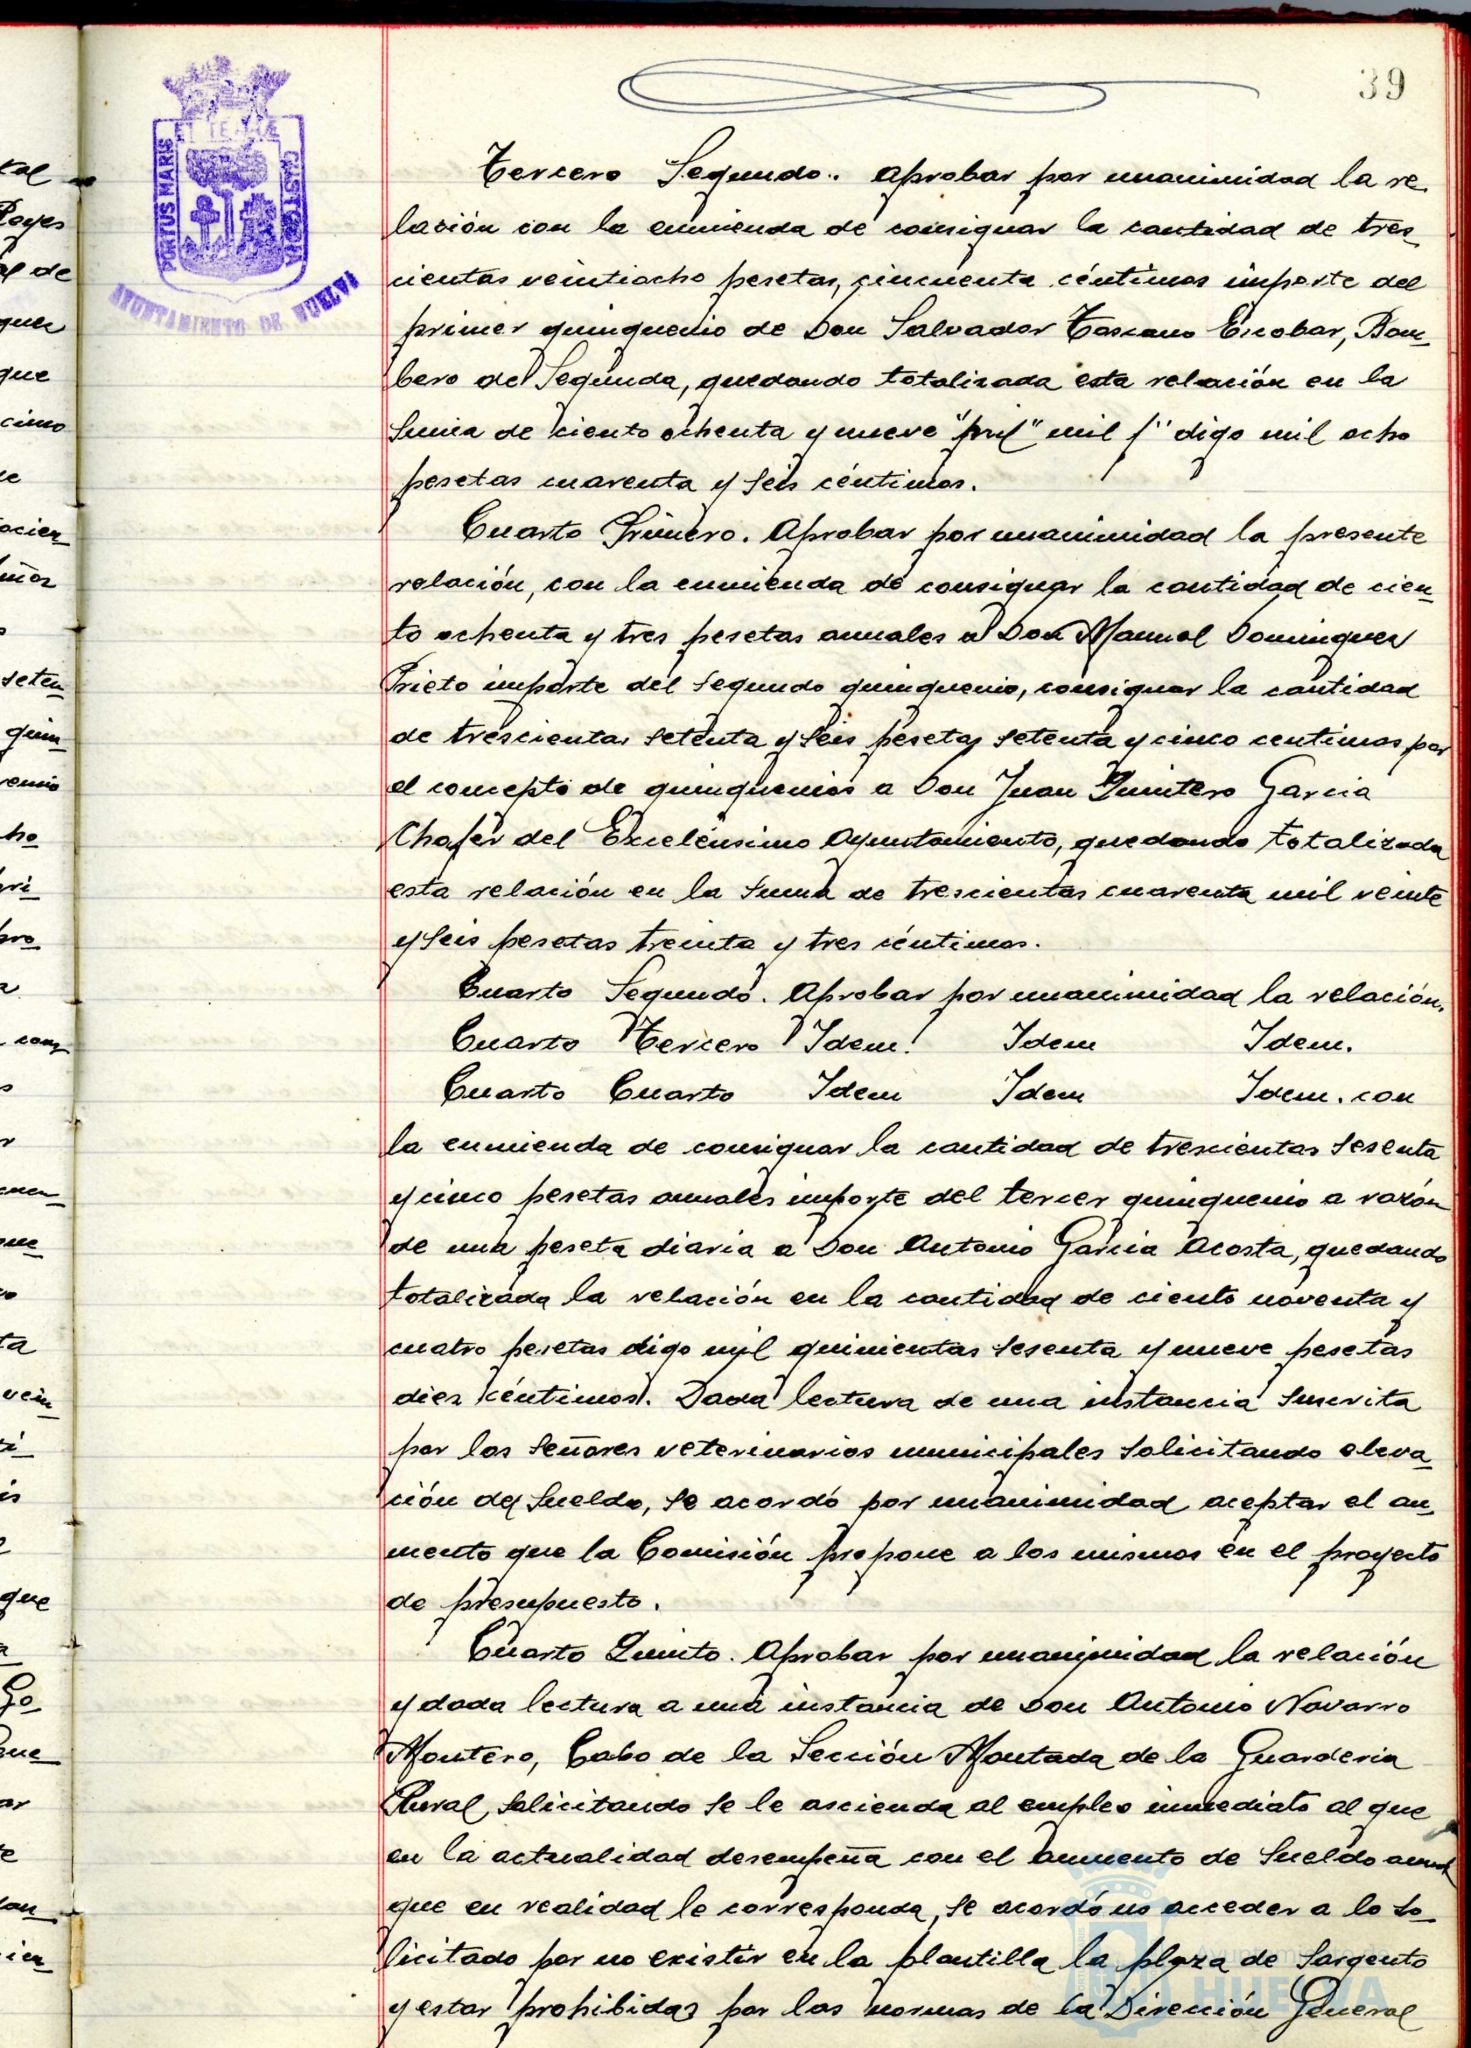 39
PORTUS MARIS
ET TERRAE
CUSTODIA
AYUNTAMIENTO DE HUELVA
Tercero Segundo.. Aprobar por unanimidad la re-
lación con la enmienda de consignar la cantidad de tres-
cientas veintiocho pesetas, cincuenta céntimos importe del
primer quinquenio de Don Salvador Toscano Escobar, Bom-
bero de Segunda, quedando totalizada esta relación en la
Suma de ciento ochenta y nueve mil digo mil ocho
pesetas cuarenta y seis céntimos.
Cuarto Primero. Aprobar por unanimidad la presente
relación, con la enmienda de consignar la cantidad de cien-
to ochenta y tres pesetas anuales a Don Manuel Dominguez
Prieto importe del segundo quinquenio, consignar la cantidad
de trescientas setenta y seis pesetas setenta y cinco centimos por
el concepto de quinquenios a Don Juan Quintero Garcia
Chofer del Excelensimo Ayuntamiento, quedando totalizada
esta relación en la Suma de trescientas cuarenta mil veinte
y seis pesetas treinta y tres céntimos.
Cuarto Segundo. Aprobar por unanimidad la relación.
Cuarto Tercero Idem. Idem Idem.
Cuarto Cuarto Idem Idem Idem. con
la enmienda de consignar la cantidad de trescientas sesenta
y cinco pesetas anuales importe del tercer quinquenio a razón
de una peseta diaria a Don Antonio Garcia Acosta, quedando
totalizada la relación en la cantidad de ciento noventa y
cuatro pesetas digo mil quinientas sesenta y nueve pesetas
diez céntimos. Dada lectura de una instancia suscrita
por los Señores veterinarios municipales solicitando eleva-
ción de Sueldo, se acordó por unanimidad aceptar el au-
mento que la Comisión propone a los mismos en el proyecto
de presupuesto.
Cuarto Quinto. Aprobar por unanimidad la relación
y dada lectura a una instancia de Don Antonio Navarro
Montero, Cabo de la Sección Montada de la Guarderia
Rural, solicitando se le ascienda al empleo inmediato al que
en la actualidad desempeña con el aumento de Sueldo
que en realidad le corresponda, se acordó no acceder a lo so-
licitado por no existir en la plantilla la plaza de Sargento
y estar prohibidas por las normas de la Dirección General
HUELVA